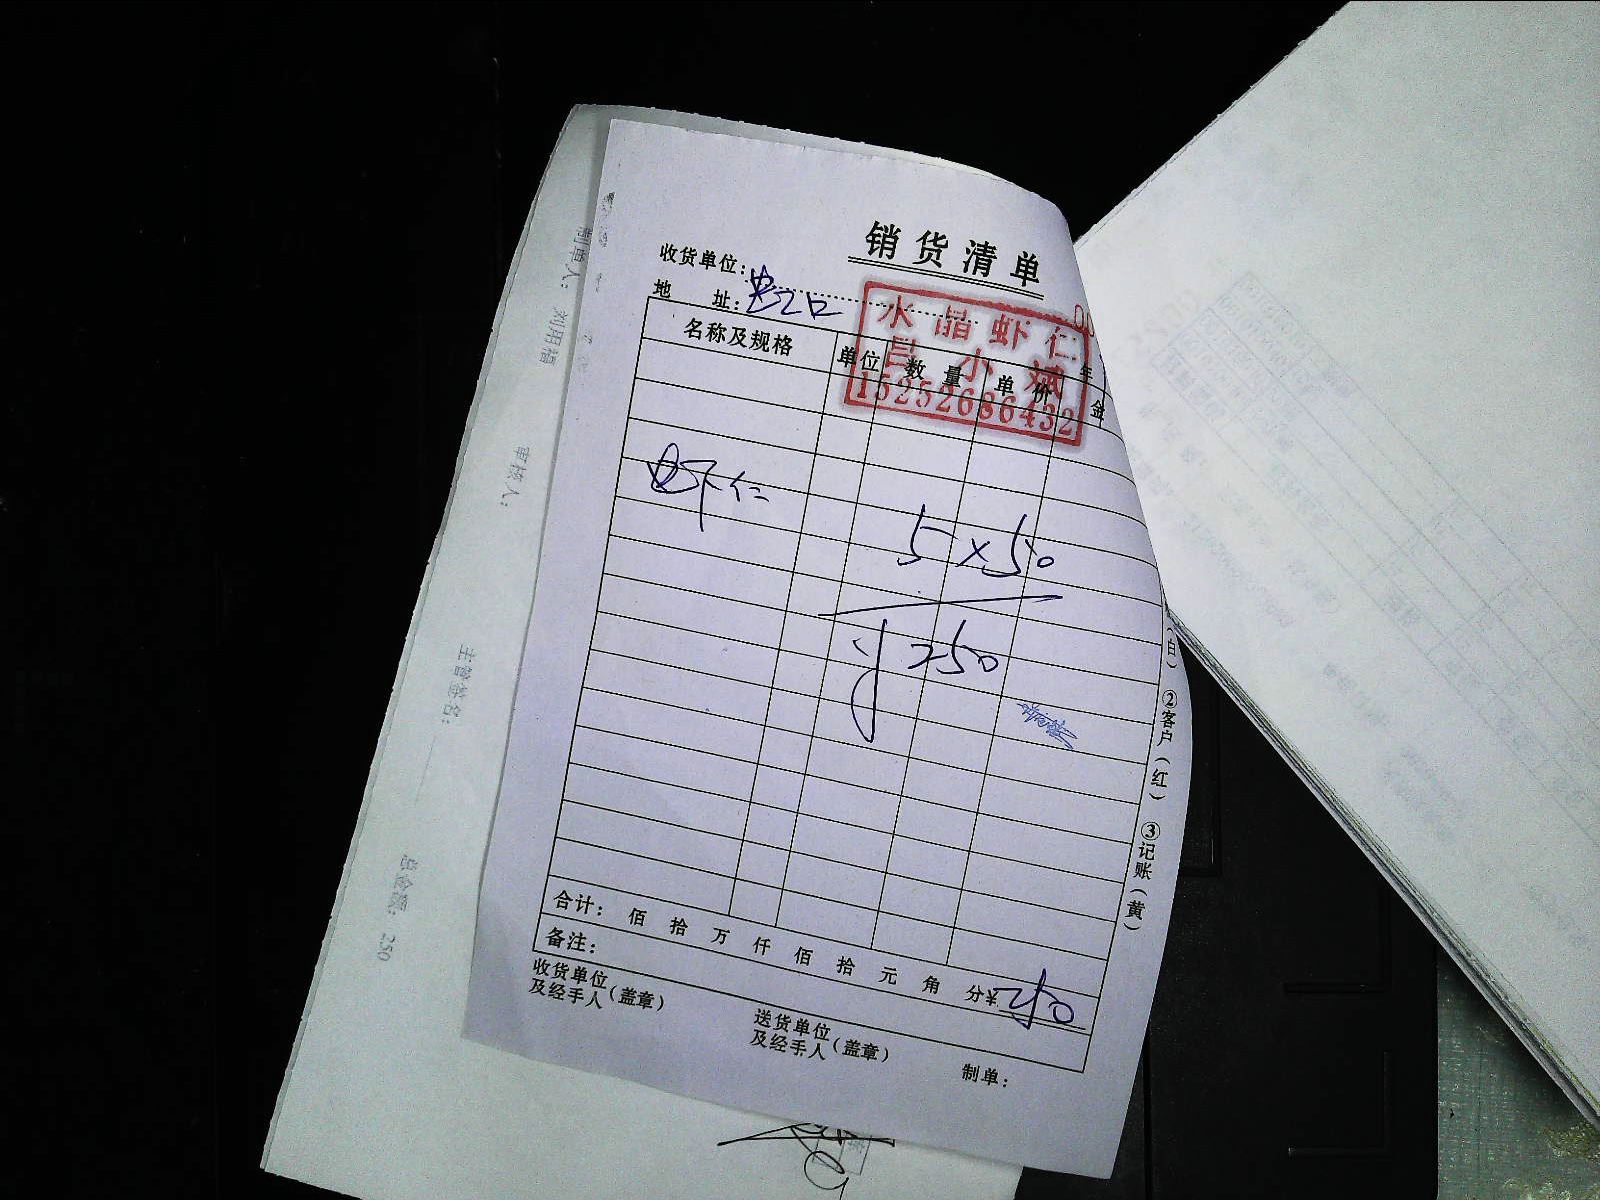 销货清单
收货单位:
地 址:
水晶虾仁
吕小斌
15252686432
年
名称及规格 单位 数量 单价 金
虾仁
5×50
¥250
合计: 佰 拾 万 仟 佰 拾 元 角 分¥250
备注:
收货单位
及经手人(盖章)
送货单位
及经手人(盖章)
制单:
(白) ②客户(红) ③记账(黄)
制单人: 刘用福
审核人:
主管签名:
总金额: 250